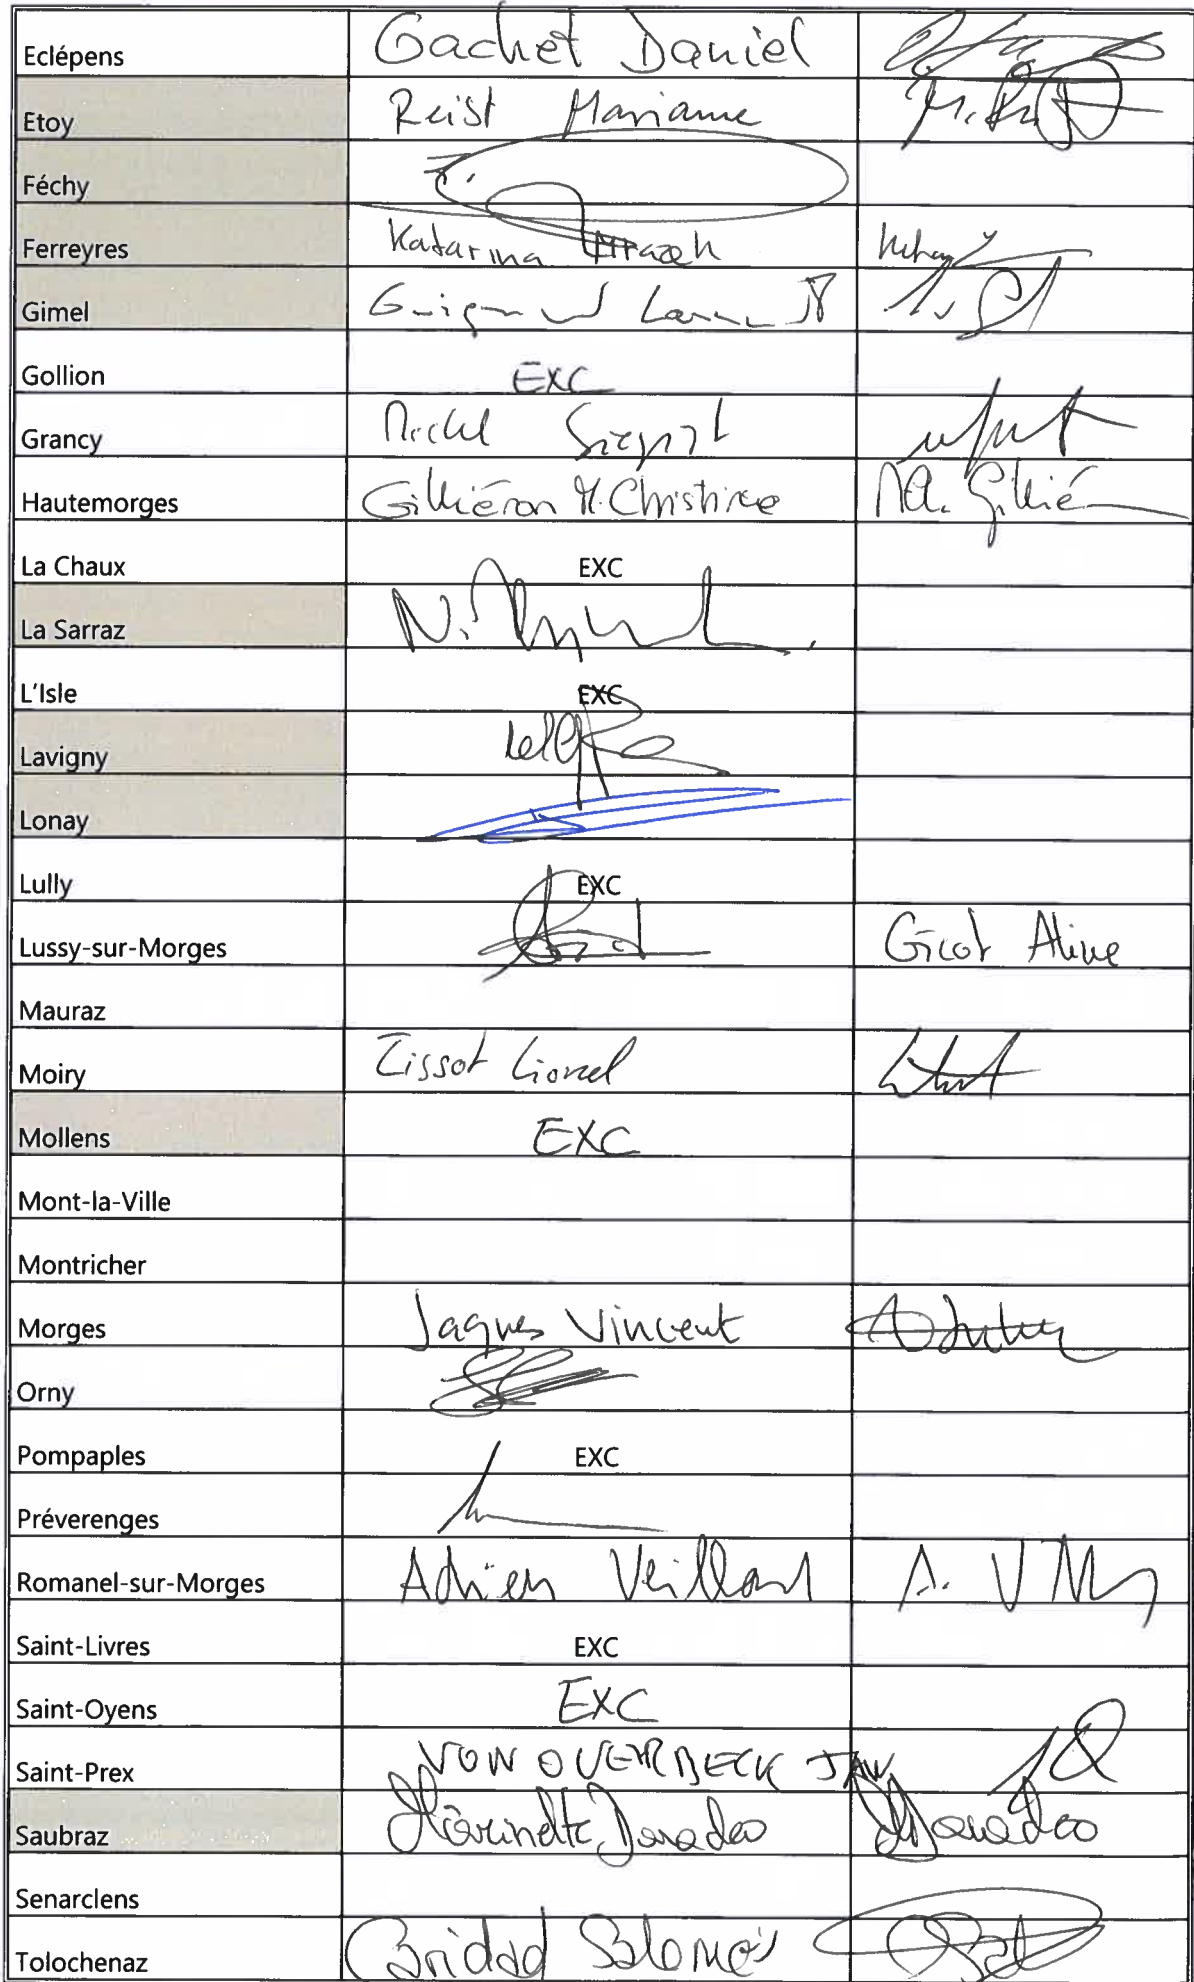 Eclépens Gachet Daniel
Etoy Reist Marianne
Féchy
Ferreyres Katarina Mrazek
Gimel
Gollion EXC
Grancy Michel
Hautemorges Gilliéron M. Christine M.C. Gillié
La Chaux EXC
La Sarraz N.
L'Isle EXC
Lavigny
Lonay
Lully EXC
Lussy-sur-Morges Gicot Aline
Mauraz
Moiry Tissot Lionel
Mollens EXC
Mont-la-Ville
Montricher
Morges Jaques Vincent
Orny
Pompaples EXC
Préverenges
Romanel-sur-Morges Adrien Veillard A.
Saint-Livres EXC
Saint-Oyens EXC
Saint-Prex VON OVERBECK JAN
Saubraz
Senarclens
Tolochenaz Caridad Salomé